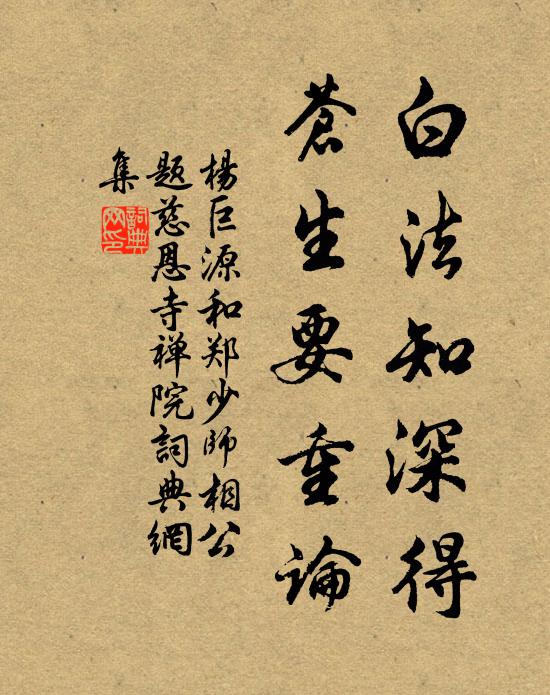 白法知深得
蒼生要重論
楊巨源和郑少師相公
题慈恩寺禅院詞典網
集
詞典網印